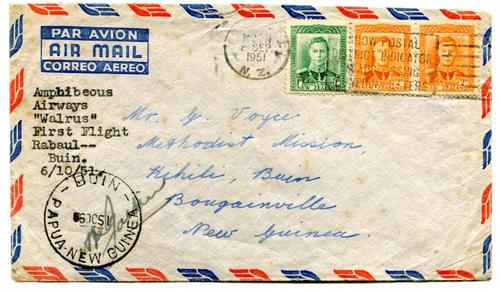 PAR AVION
AIR MAIL
CORREO AEREO
1951
N.Z.
POSTAL
INDICATOR
Amphibeous
Airways
"Walrus"
First Flight
Rabaul--
Buin.
6/10/51.
Mr. G. Voyce
Methodist Mission
Kihili, Buin
Bougainville
New Guinea.
BUIN
PAPUA-NEW GUINEA